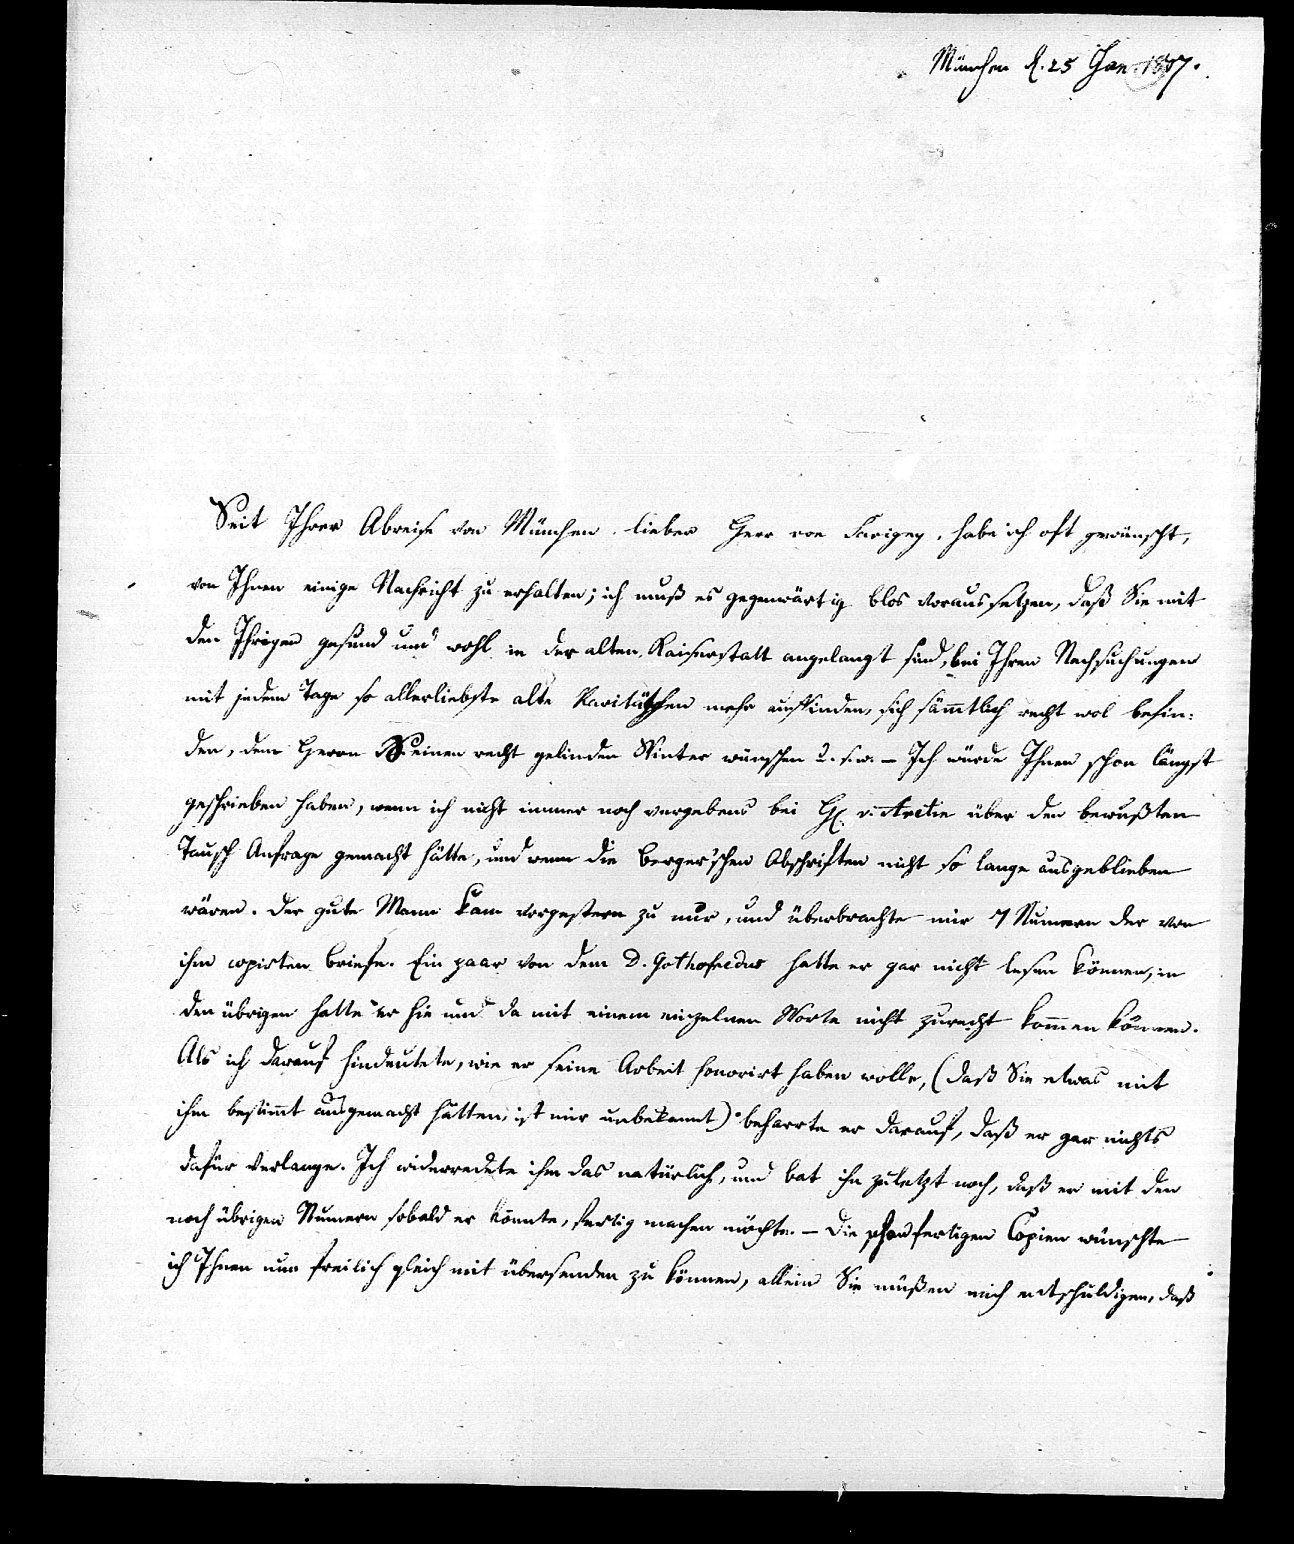 München d. 25 Jan. 1807.
Seit Ihrer Abreise von München, lieber Herr von Savigny, habe ich oft gewünscht,
von Ihnen einige Nachricht zu erhalten; ich muß es gegenwärtig blos voraussetzen, daß Sie mit
den Ihrigen gesund und wohl in der alten Kaiserstatt angelangt sind, bei Ihren Nachsuchungen
mit jedem Tage so allerliebste alte Raritätchen mehr auffinden, sich sämtlich recht wol befin-
den, dem Herrn einen recht gelinden Winter wünschen u. s. w. – Ich würde Ihnen schon längst
geschrieben haben, wenn ich nicht immer noch vergebens bei H. v. Aretin über den bewußten
Tausch Anfrage gemacht hätte, und wenn die Berger'schen Abschriften nicht so lange ausgeblieben
wären. Der gute Mann kam vorgestern zu mir, und überbrachte mir 7 Numern der von
ihm copirten Briefe. Ein paar von dem D. Gothofredus hatte er gar nicht lesen können, in
den übrigen hatte er hie und da mit einem einzelnen Worte nicht zurecht kommen können.
Als ich darauf hindeutete, wie er seine Arbeit honorirt haben wolle, (daß Sie etwas mit
ihm bestimt ausgemacht hätten, ist mir unbekannt) beharrte er darauf, daß er gar nichts
dafür verlange. Ich widerredete ihm das natürlich, und bat ihn zuletzt noch, daß er mit den
noch übrigen Numern sobald er könnte, fertig machen möchte. – Die schon fertigen Copien wünschte
ich Ihnen nun freilich gleich mit übersenden zu können, allein Sie müßen mich entschuldigen, daß